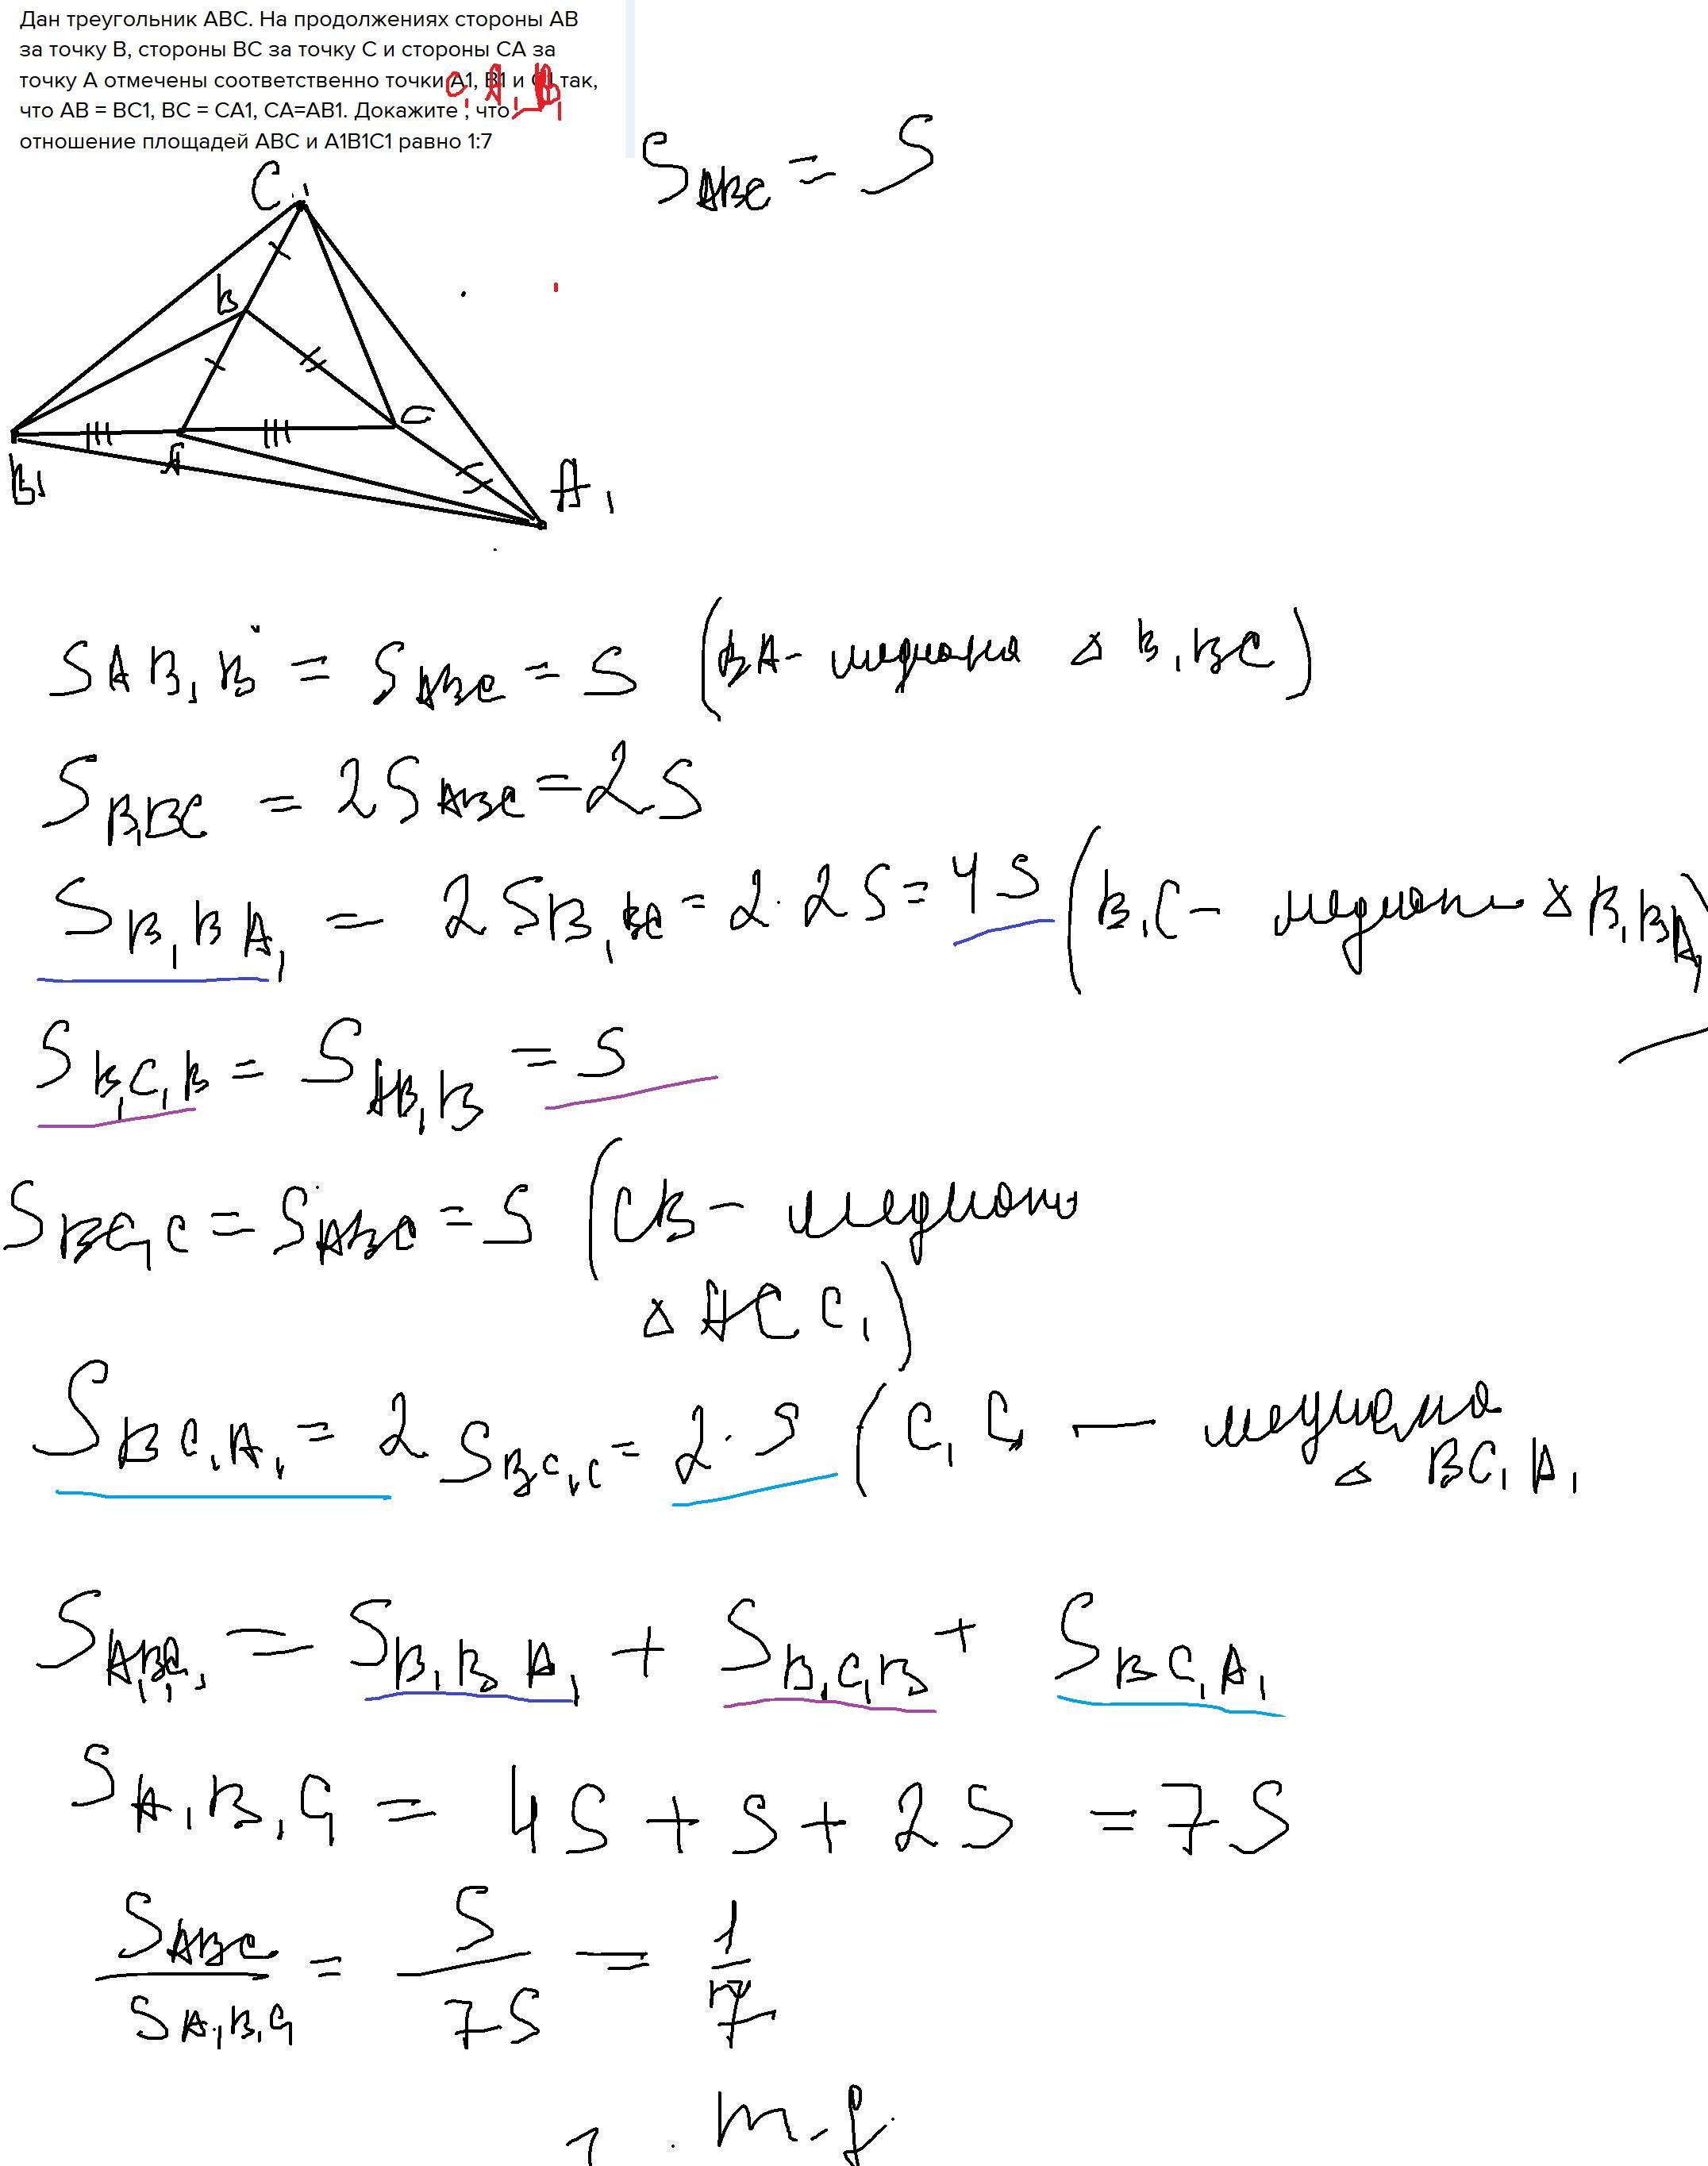 Дан треугольник ABC. На продолжениях стороны AB
за точку B, стороны BC за точку C и стороны CA за
точку A отмечены соответственно точки A1, B1 и C1 так,
C1 A1 B1
что AB = BC1, BC = CA1, CA=AB1. Докажите , что
отношение площадей ABC и A1B1C1 равно 1:7
S ABC = S
C1
B
C
B1
A
A1
S AB1B = S ABC = S (BA - медиана Δ B1BC)
S B1BC = 2S ABC = 2S
S B1BA1 = 2S B1BC = 2·2S = 4S (B1C - медиана Δ B1BA1)
S B1C1B = S AB1B = S
S BC1C = S ABC = S (CB - медиана
Δ ACC1)
S BC1A1 = 2S BC1C = 2·S (C1C - медиана
Δ BC1A1
S A1B1C1 = S B1BA1 + S B1C1B + S BC1A1
S A1B1C1 = 4S + S + 2S = 7S
S ABC / S A1B1C1 = S / 7S = 1 / 7